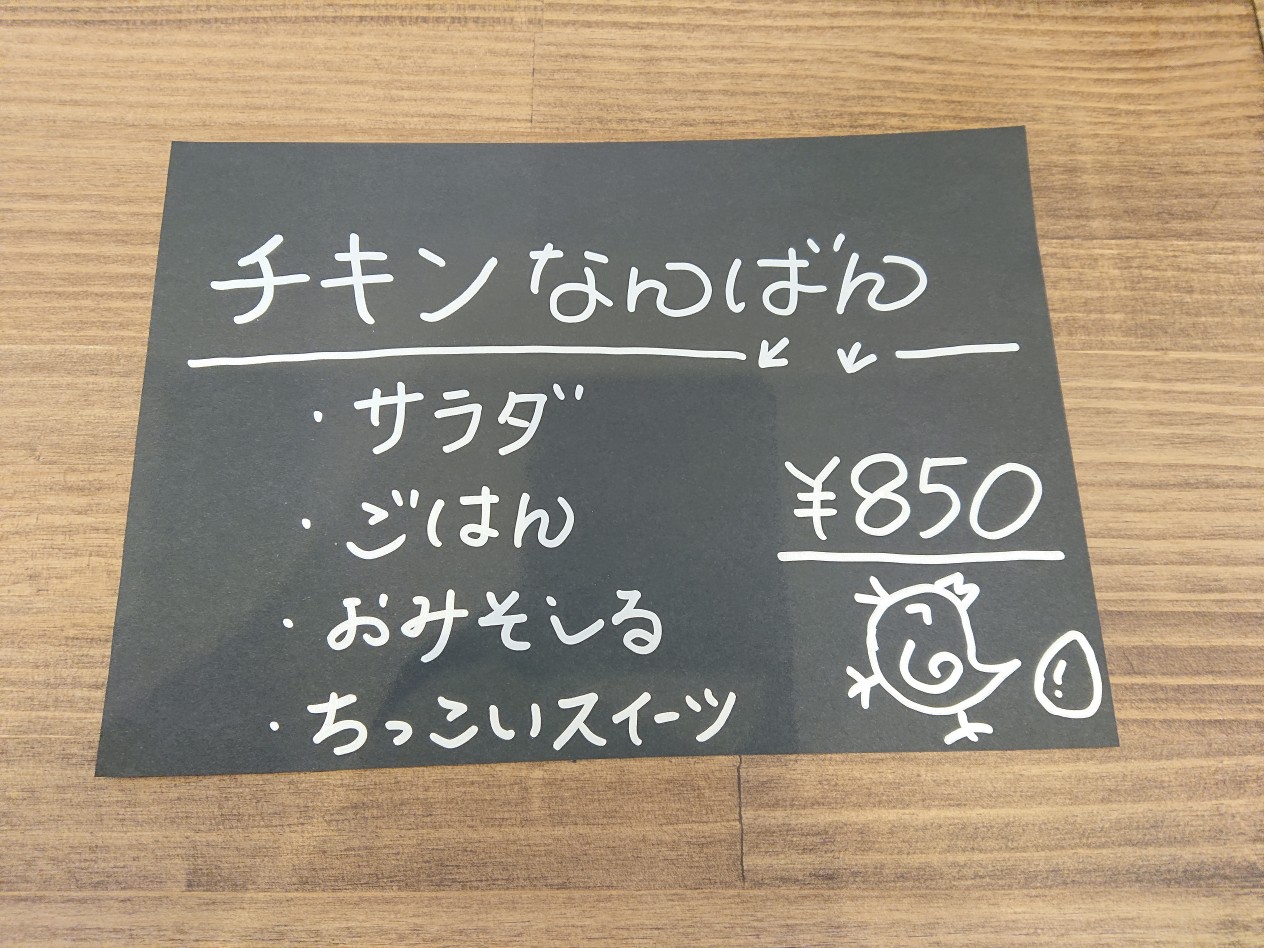 チキンなんばん
・サラダ
・ごはん
・おみそしる
・ちっこいスイーツ
¥850